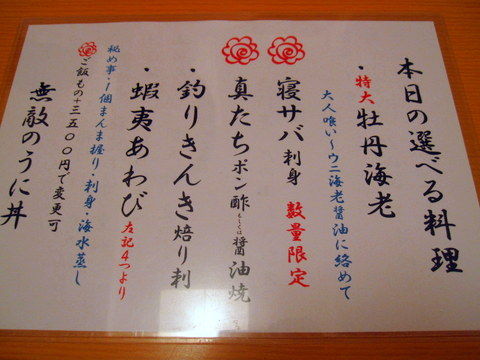 本日の選べる料理
・特大 牡丹海老
大人喰い～ウニ海老醤油に絡めて
寝サバ刺身 数量限定
真たちポン酢もしくは醤油焼
・釣りきんき焙り刺
・蝦夷あわび 左記4つより
秘め事・1個まんま握り・刺身・海水蒸し
ご飯もの+三五〇〇円で変更可
無敵のうに丼